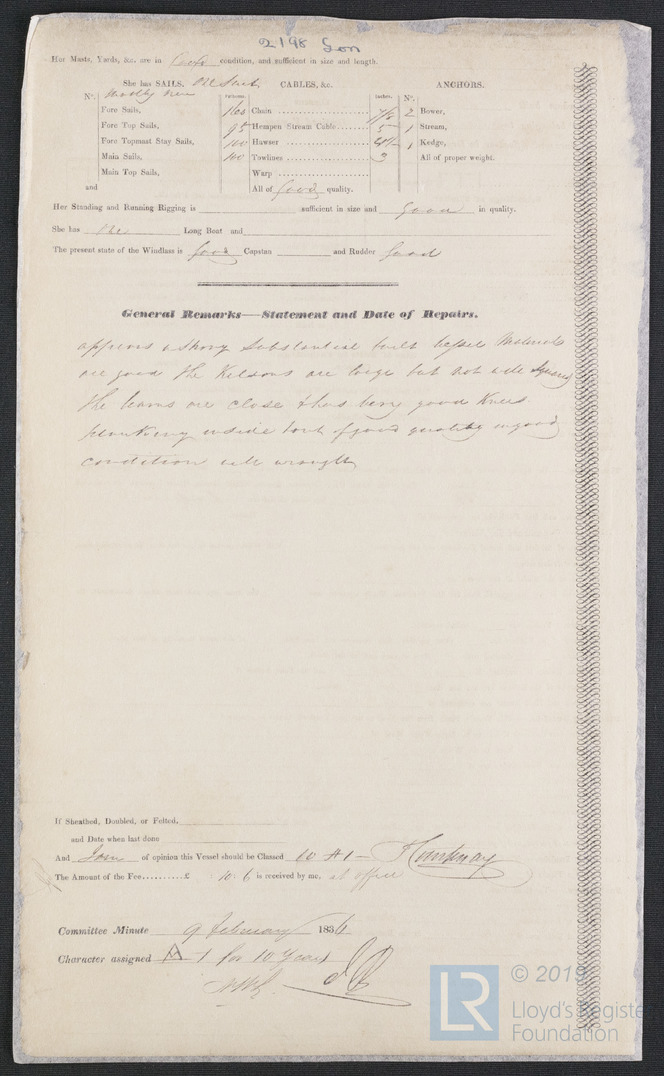 2198 Lon
Her Masts, Yards, &c. are in Good condition, and sufficient in size and length.
She has SAILS. One Suit CABLES, &c. ANCHORS.
Nº. Mostly New Fathoms. Inches. Nº.
Fore Sails, 160 Chain 7/8 2 Bower,
Fore Top Sails, 90 Hempen Stream Cable 5 1 Stream,
Fore Topmast Stay Sails, 100 Hawser 1 Kedge,
Main Sails, 100 Towlines 3 All of proper weight.
Main Top Sails, Warp
and All of Good quality.
Her Standing and Running Rigging is sufficient in size and Good in quality.
She has One Long Boat and
The present state of the Windlass is Good Capstan and Rudder Good
General Remarks—Statement and Date of Repairs.
appears a Strong Substantial built Vessel Materials
are good the Kelsons are large but not all Squared
the beams are close & has very good Knees.
planking inside & out of good quality in good
condition well wrought
If Sheathed, Doubled, or Felted,
and Date when last done
And I am of opinion this Vessel should be Classed 10 A1 — Courtenay
The Amount of the Fee..........£ : 10 : 6 is received by me, at office
Committee Minute 9 February 1836
Character assigned A 1 for 10 Years
© 2019
LR Lloyd's Register
Foundation